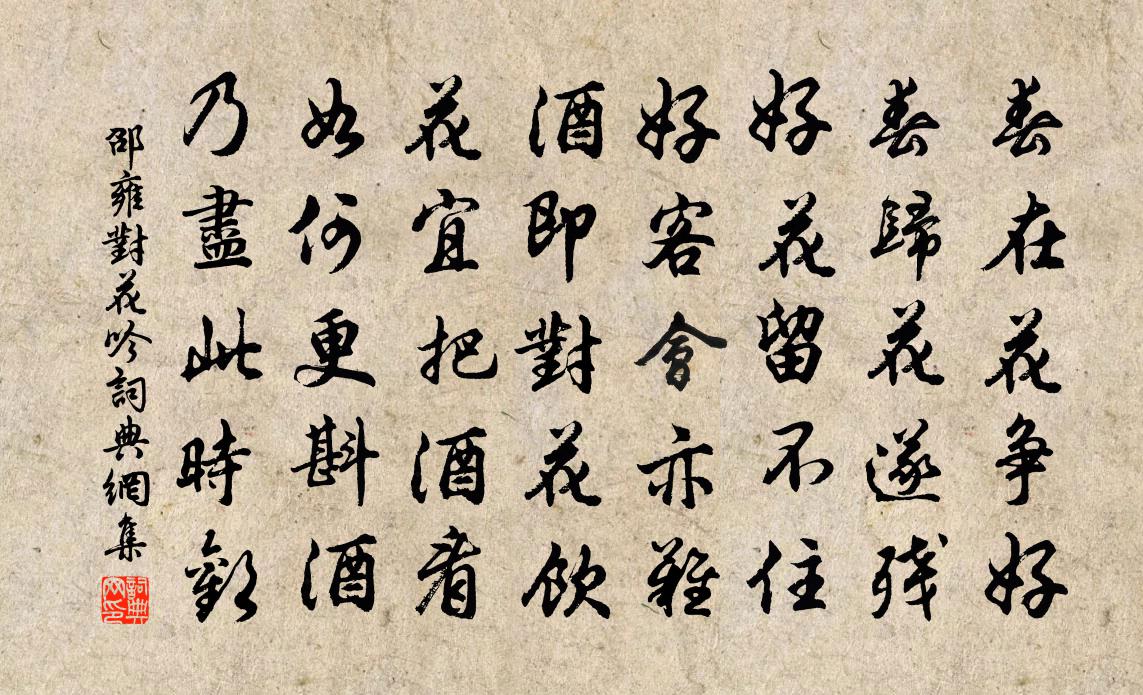 春在花争好
春歸花遂残
好花留不住
好客會亦難
酒即對花飲
花宜把酒看
如何更斟酒
乃盡此時歡
邵雍對花吟詞典網集
詞典网印